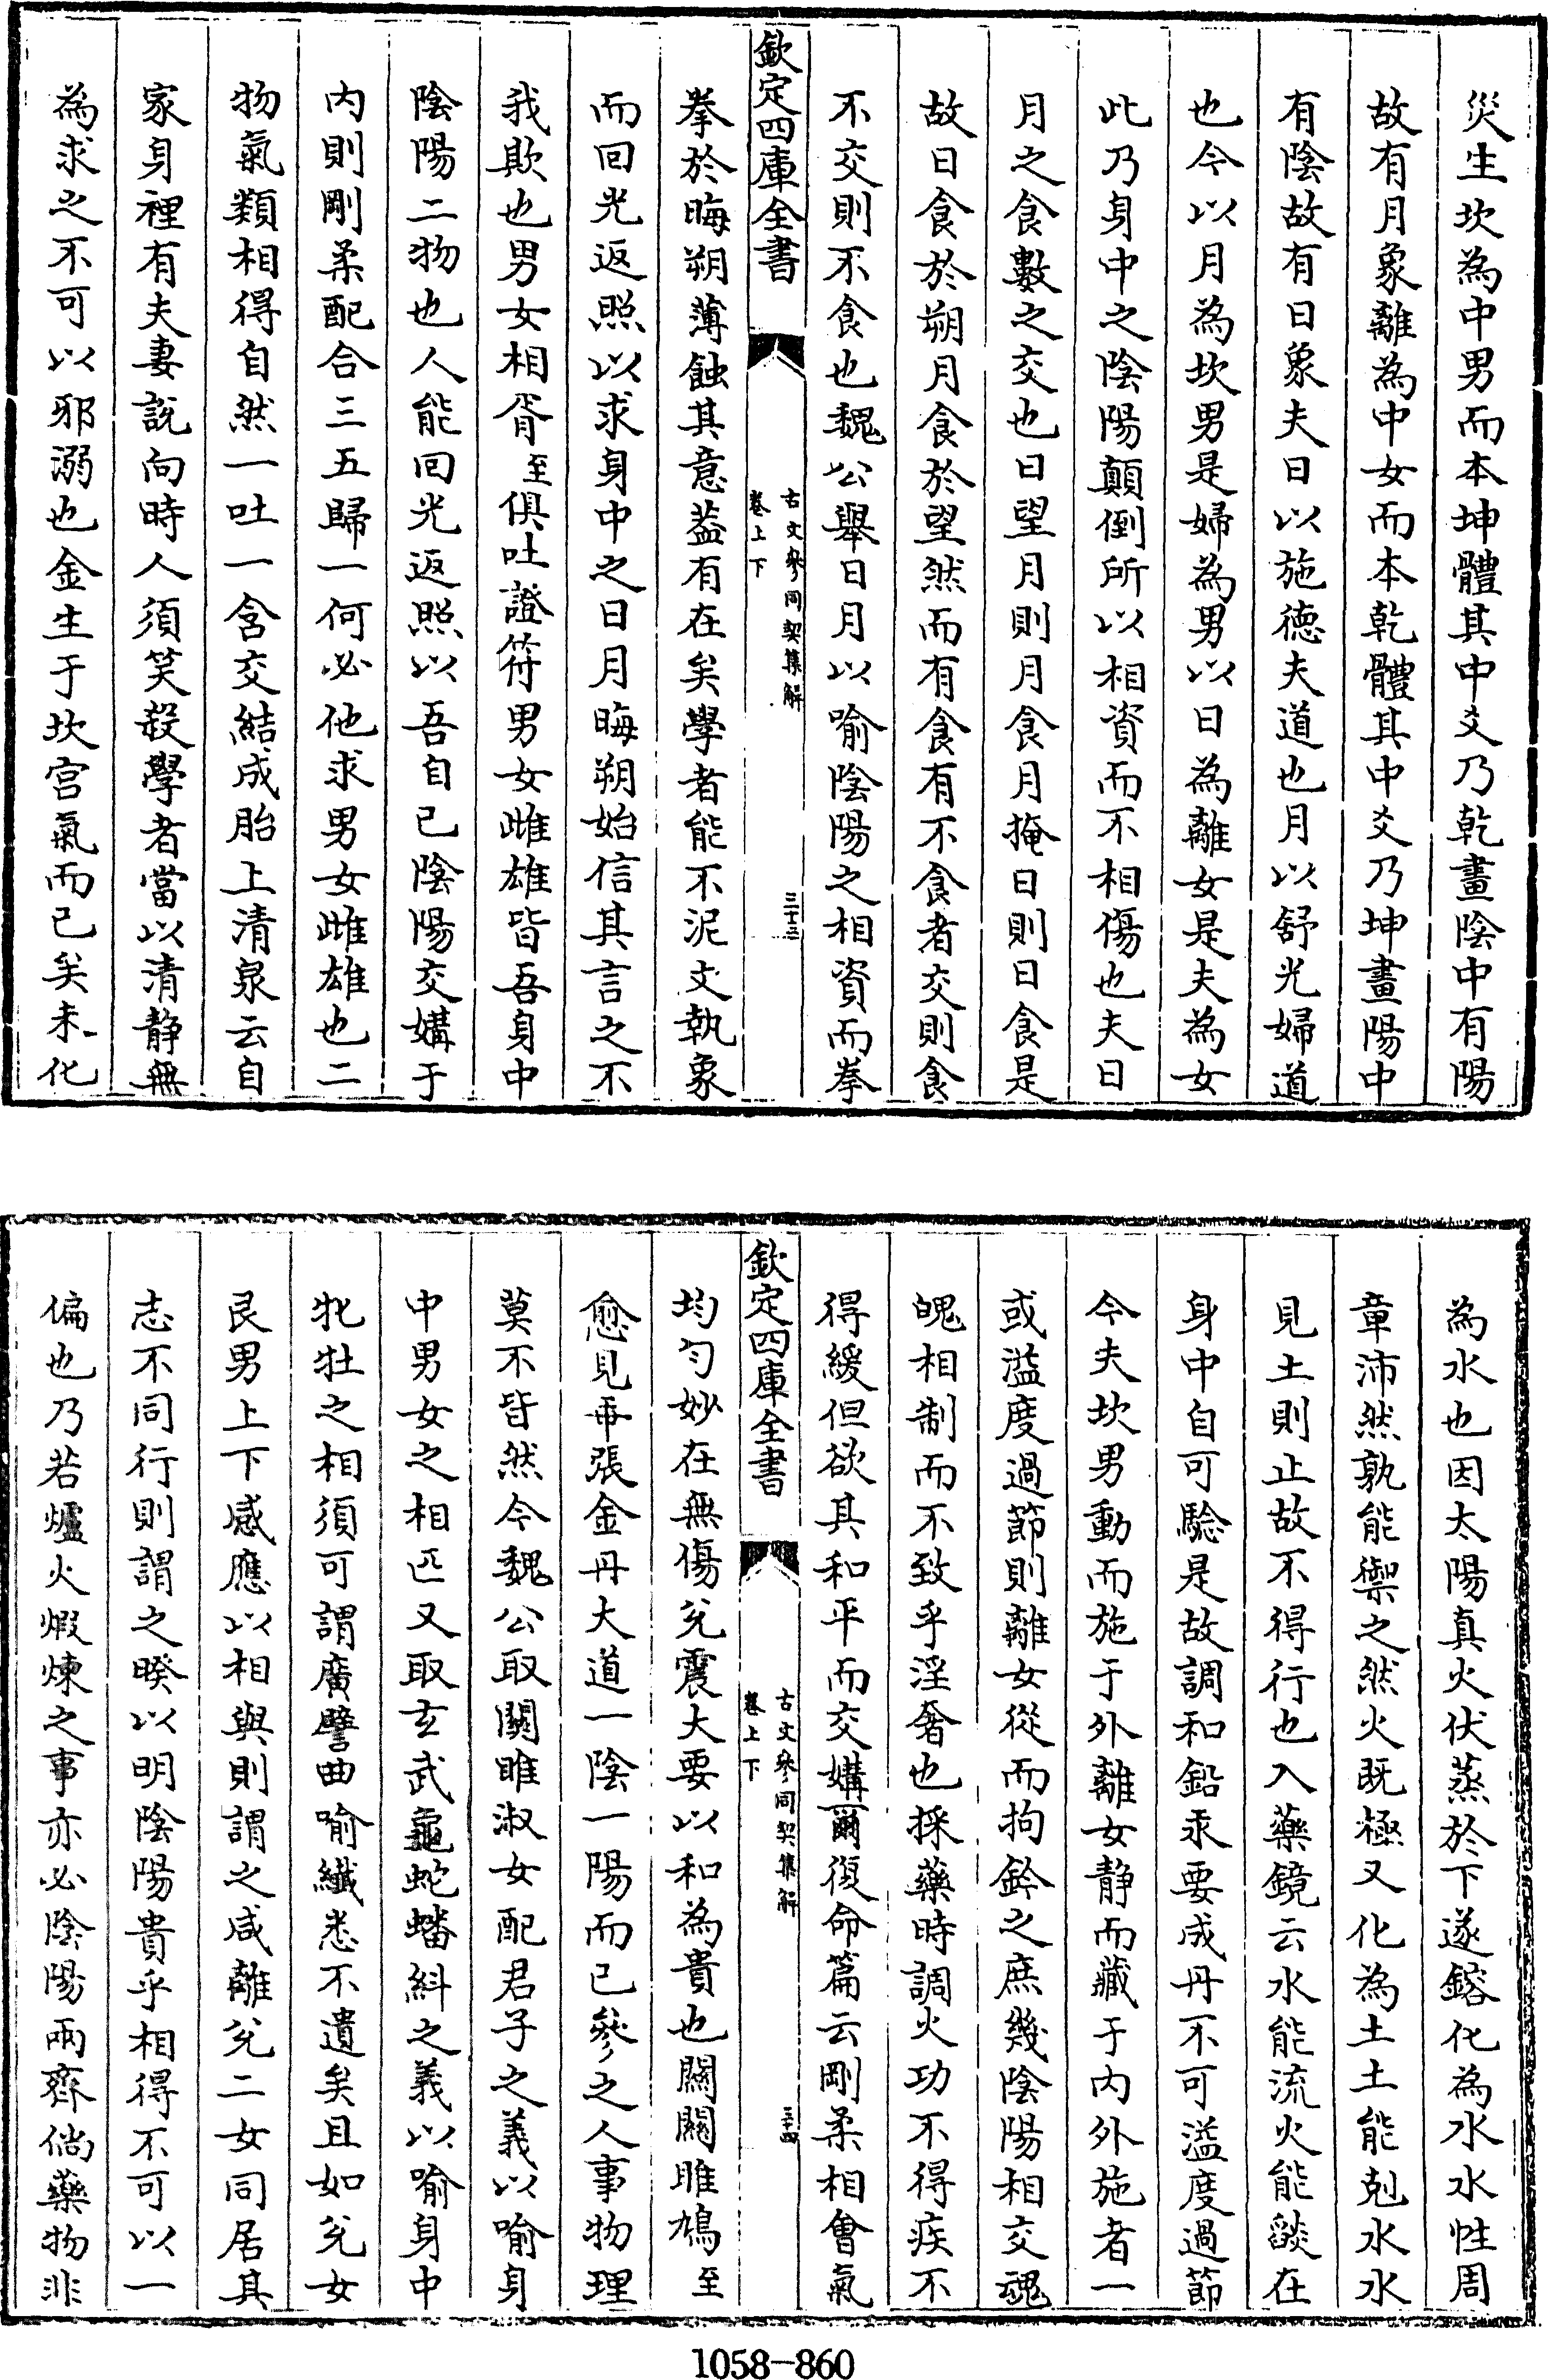 災生坎為中男而本坤體其中爻乃乾畫陰中有陽
故有月象離為中女而本乾體其中爻乃坤畫陽中
有陰故有日象夫日以施德夫道也月以舒光婦道
也今以月為坎男是婦為男以日為離女是夫為女
此乃身中之陰陽顛倒所以相資而不相傷也夫日
月之食數之交也日望月則月食月掩日則日食是
故日食於朔月食於望然而有食有不食者交則食
不交則不食也魏公舉日月以喻陰陽之相資而拳
欽定四庫全書
古文參同契集解
卷上下
三十三
拳於晦朔薄蝕其意葢有在矣學者能不泥文執象
而回光返照以求身中之日月晦朔始信其言之不
我欺也男女相胥至俱吐證符男女雌雄皆吾身中
陰陽二物也人能回光返照以吾自己陰陽交媾于
内則剛柔配合三五歸一何必他求男女雌雄也二
物氣類相得自然一吐一含交結成胎上清泉云自
家身裡有夫妻說向時人須笑殺學者當以清静無
為求之不可以邪溺也金生于坎宫氣而已矣未化
為水也因太陽真火伏蒸於下遂鎔化為水水性周
章沛然孰能禦之然火既極又化為土土能剋水水
見土則止故不得行也入藥鏡云水能流火能燄在
身中自可驗是故調和鉛汞要成丹不可溢度過節
今夫坎男動而施于外離女静而藏于内外施者一
或溢度過節則離女從而拘鈐之庶幾陰陽相交魂
魄相制而不致乎淫奢也採藥時調火功不得疾不
得緩但欲其和平而交媾爾復命篇云剛柔相會氣
欽定四庫全書
古文參同契集解
卷上下
三十四
均勻妙在無傷兊震大要以和為貴也關關雎鳩至
愈見乖張金丹大道一陰一陽而已參之人事物理
莫不皆然今魏公取關雎淑女配君子之義以喻身
中男女之相匹又取玄武龜蛇蟠糾之義以喻身中
牝牡之相須可謂廣譬曲喻纎悉不遺矣且如兊女
艮男上下感應以相與則謂之咸離兊二女同居其
志不同行則謂之睽以明陰陽貴乎相得不可以一
偏也乃若爐火煆煉之事亦必陰陽兩齊倘藥物非
1058-860